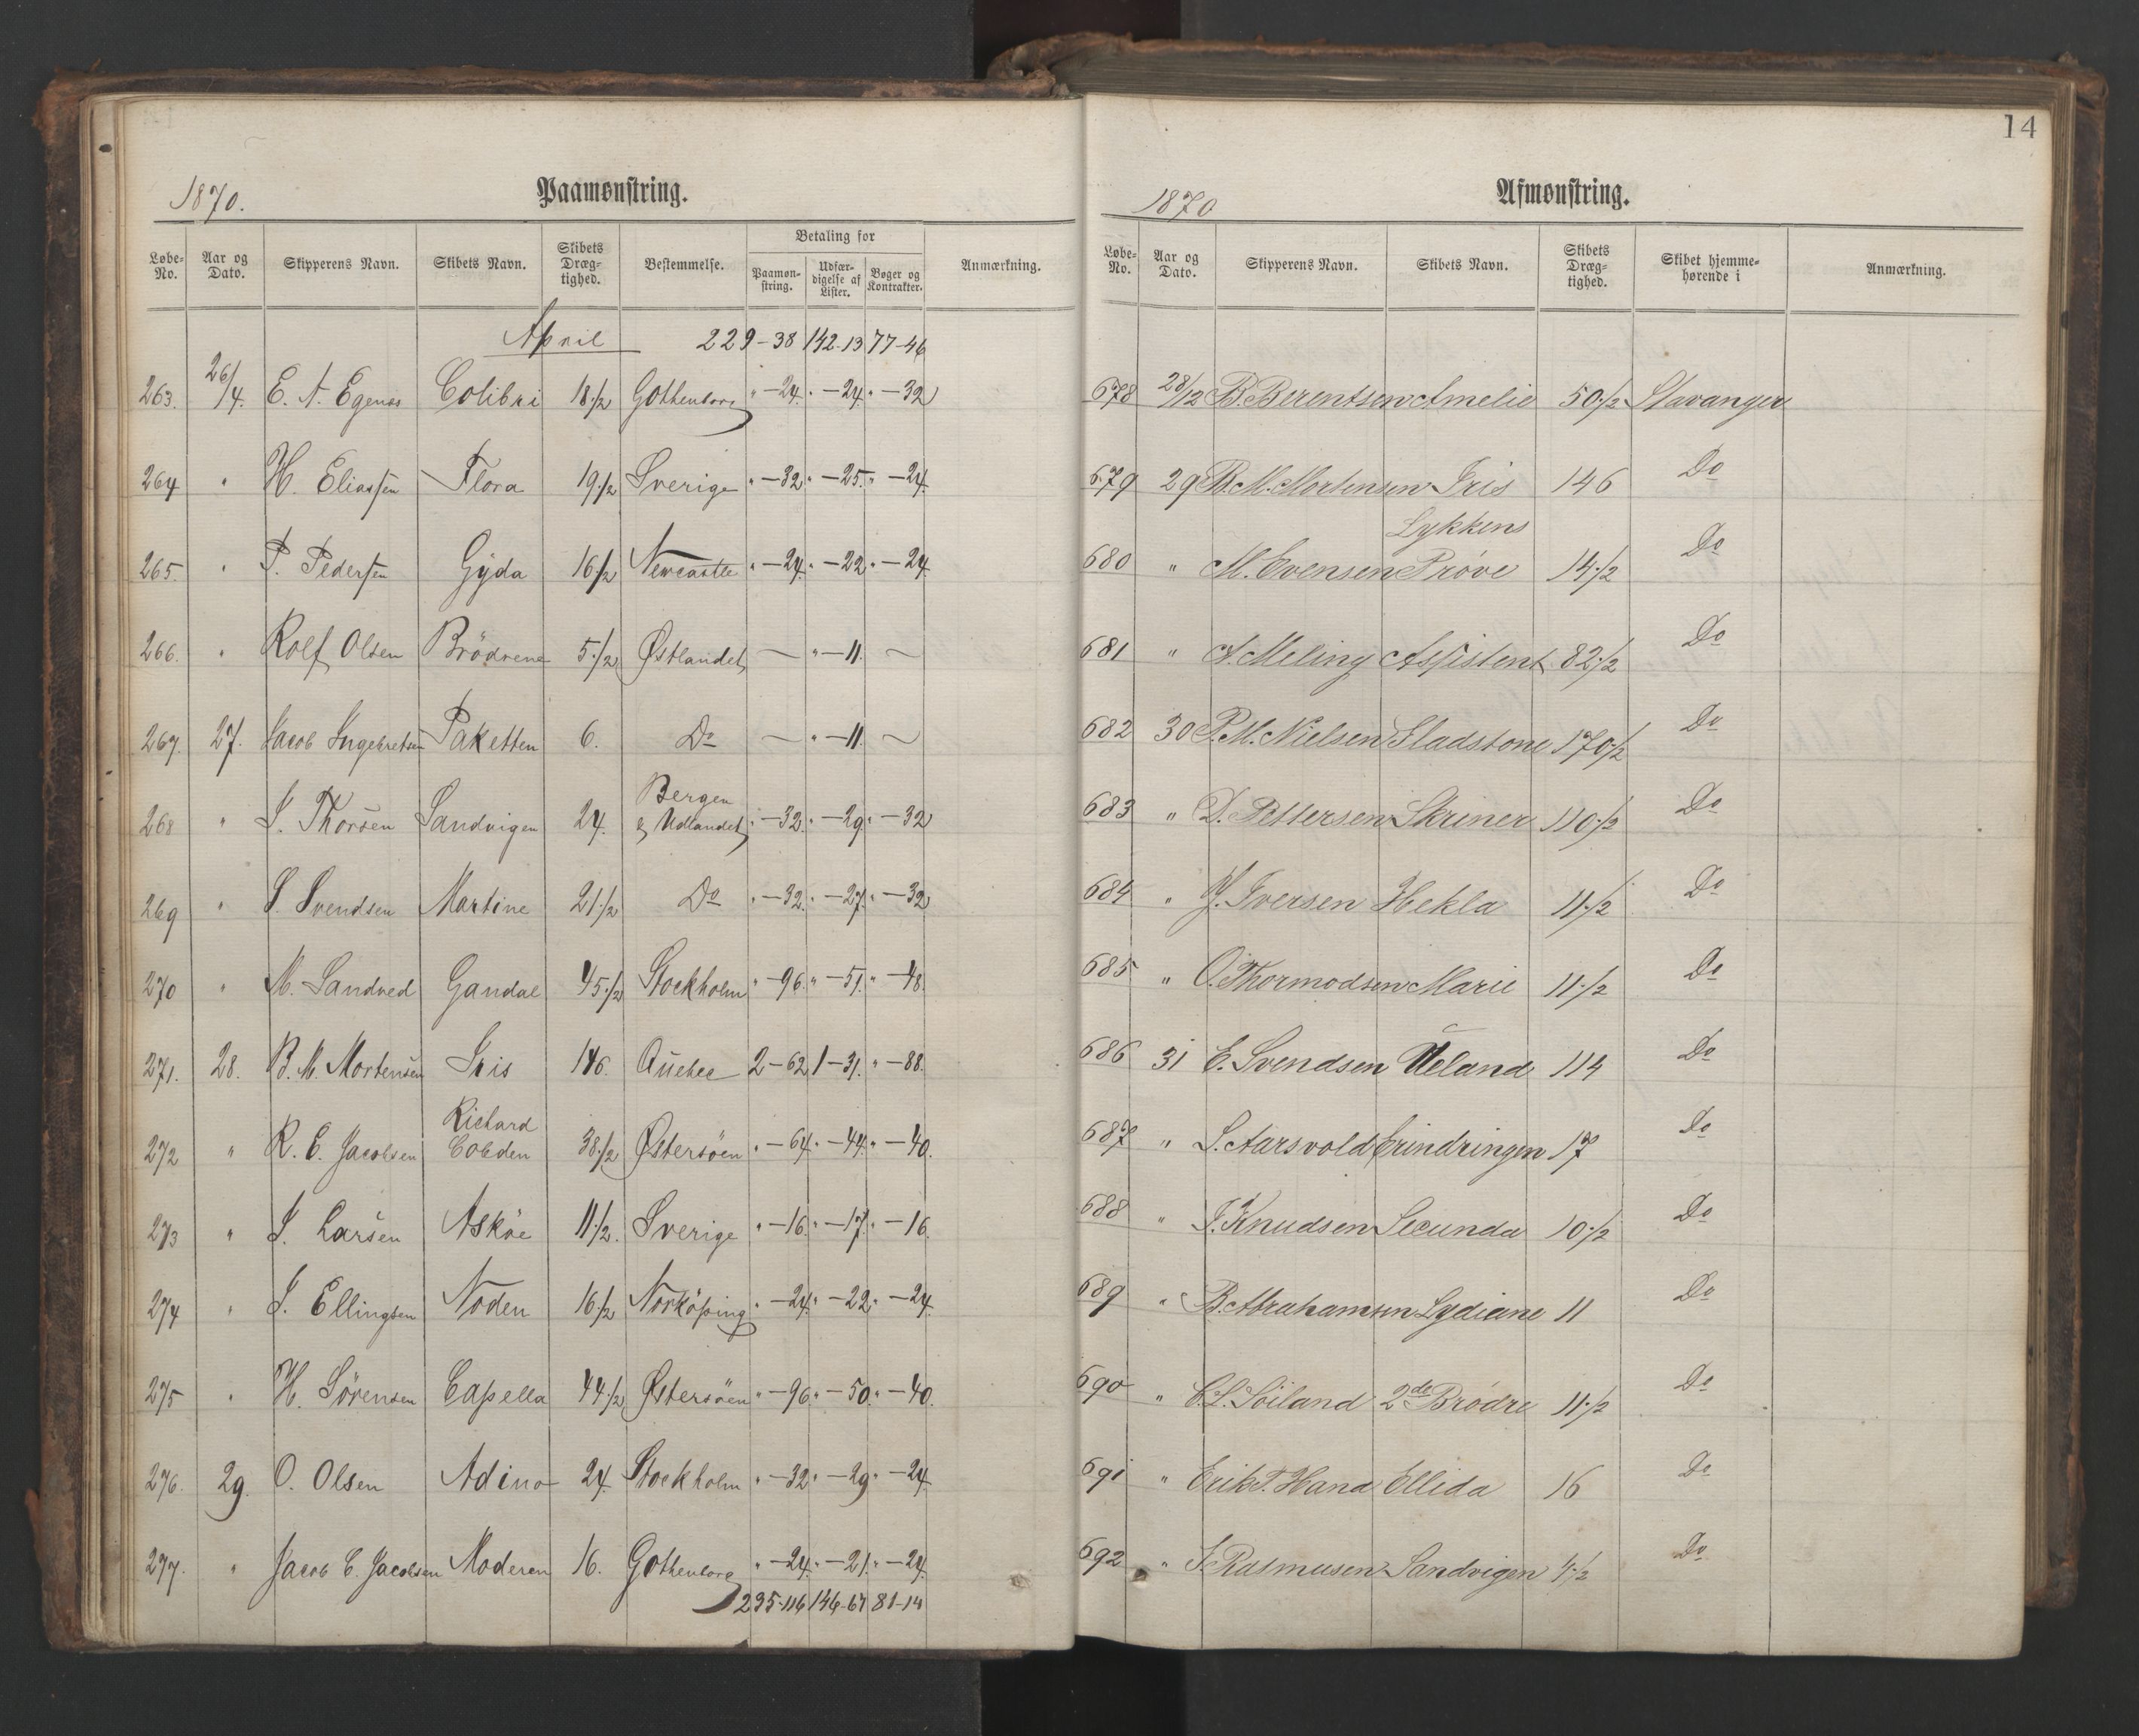 1870.
Paamønstring.
Løbe-No. Aar og Dato. Skipperens Navn. Skibets Navn. Skibets Dræg-tighed. Bestemmelse. Betaling for Paamøn-string. Udfær-digelse af Lister. Bøger og Kontrakter. Anmærkning.
April 229-38 142-13 77-46
263. 26/4. E. A. Egenes Colibri 18 1/2 Gothenborg " -24. " -24. " -32
264 " H. Eliassen Flora 19 1/2 Sverige " -32. " -25. " -24.
265. " P. Pedersen Gyda 16 1/2 Newcastle " -24. " -22. " -24.
266. " Rolf Olsen Brödrene 5 1/2 Østlandet ~ " -11. ~
267. 27. Jacob Ingebretsen Paketten 6. Do ~ " -11. ~
268 " S. Thorsen Sandvigen 24. Bergen & Udlandet " -32. " -29. " -32
269 " S. Svendsen Martine 21 1/2 Do " -32. " -27. " -32
270 " M. Sandved Gandal 45 1/2 Stockholm " -96. " -51. " -48.
271. 28. B. M. Mortensen Iris 146. Quebec 2-62 1-31. " -88.
272 " R. E. Jacobsen Richard Cobden 38 1/2 Østersöen " -64. " -44. " -40.
273 " S. Larsen Asköe 11 1/2. Sverige " -16. " -17. " -16.
274 " S. Ellingsen Noden 16 1/2 Norköping " -24. " -22. " -24.
275 " H. Sörensen Capella 44 1/2 Østersöen " -96. " -50. " -40.
276. 29. O. Olsen Adino 24. Stockholm " -32. " -29. " -24.
277. " Jacob C. Jacobsen Moderen 16. Gothenborg " -24. " -21. " -24.
235-116 146-67 81-14
14
1870
Afmønstring.
Løbe-No. Aar og Dato. Skipperens Navn. Skibets Navn. Skibets Dræg-tighed. Skibet hjemme-hørende i Anmærkning.
678 28/12 B. Berentsen Amelie 50 1/2 Stavanger
679 29 B. M. Mortensen Iris 146 Do
680 " M. Evensen Lykkens Prøve 14 1/2 Do
681 " A. Meling Assistent 82 1/2 Do
682 30 P. M. Nielsen Gladstone 170 1/2 Do
683 " D. Pettersen Skriner 110 1/2 Do
684 " Y. Iversen Hekla 11 1/2 Do
685 " O. Thormodsen Marie 11 1/2 Do
686 31 E. Svendsen Ueland 114 Do
687 " S. Aarsvold Erindringen 17 Do
688 " J. Knudsen Secunda 10 1/2 Do
689 " B. Abrahamsen Lydiane 11 Do
690 " C. L. Söiland 2de Brödre 11 1/2 Do
691 " Erik T. Hana Ellida 16 Do
692 " J. Rasmusen Sandvigen 4 1/2 Do